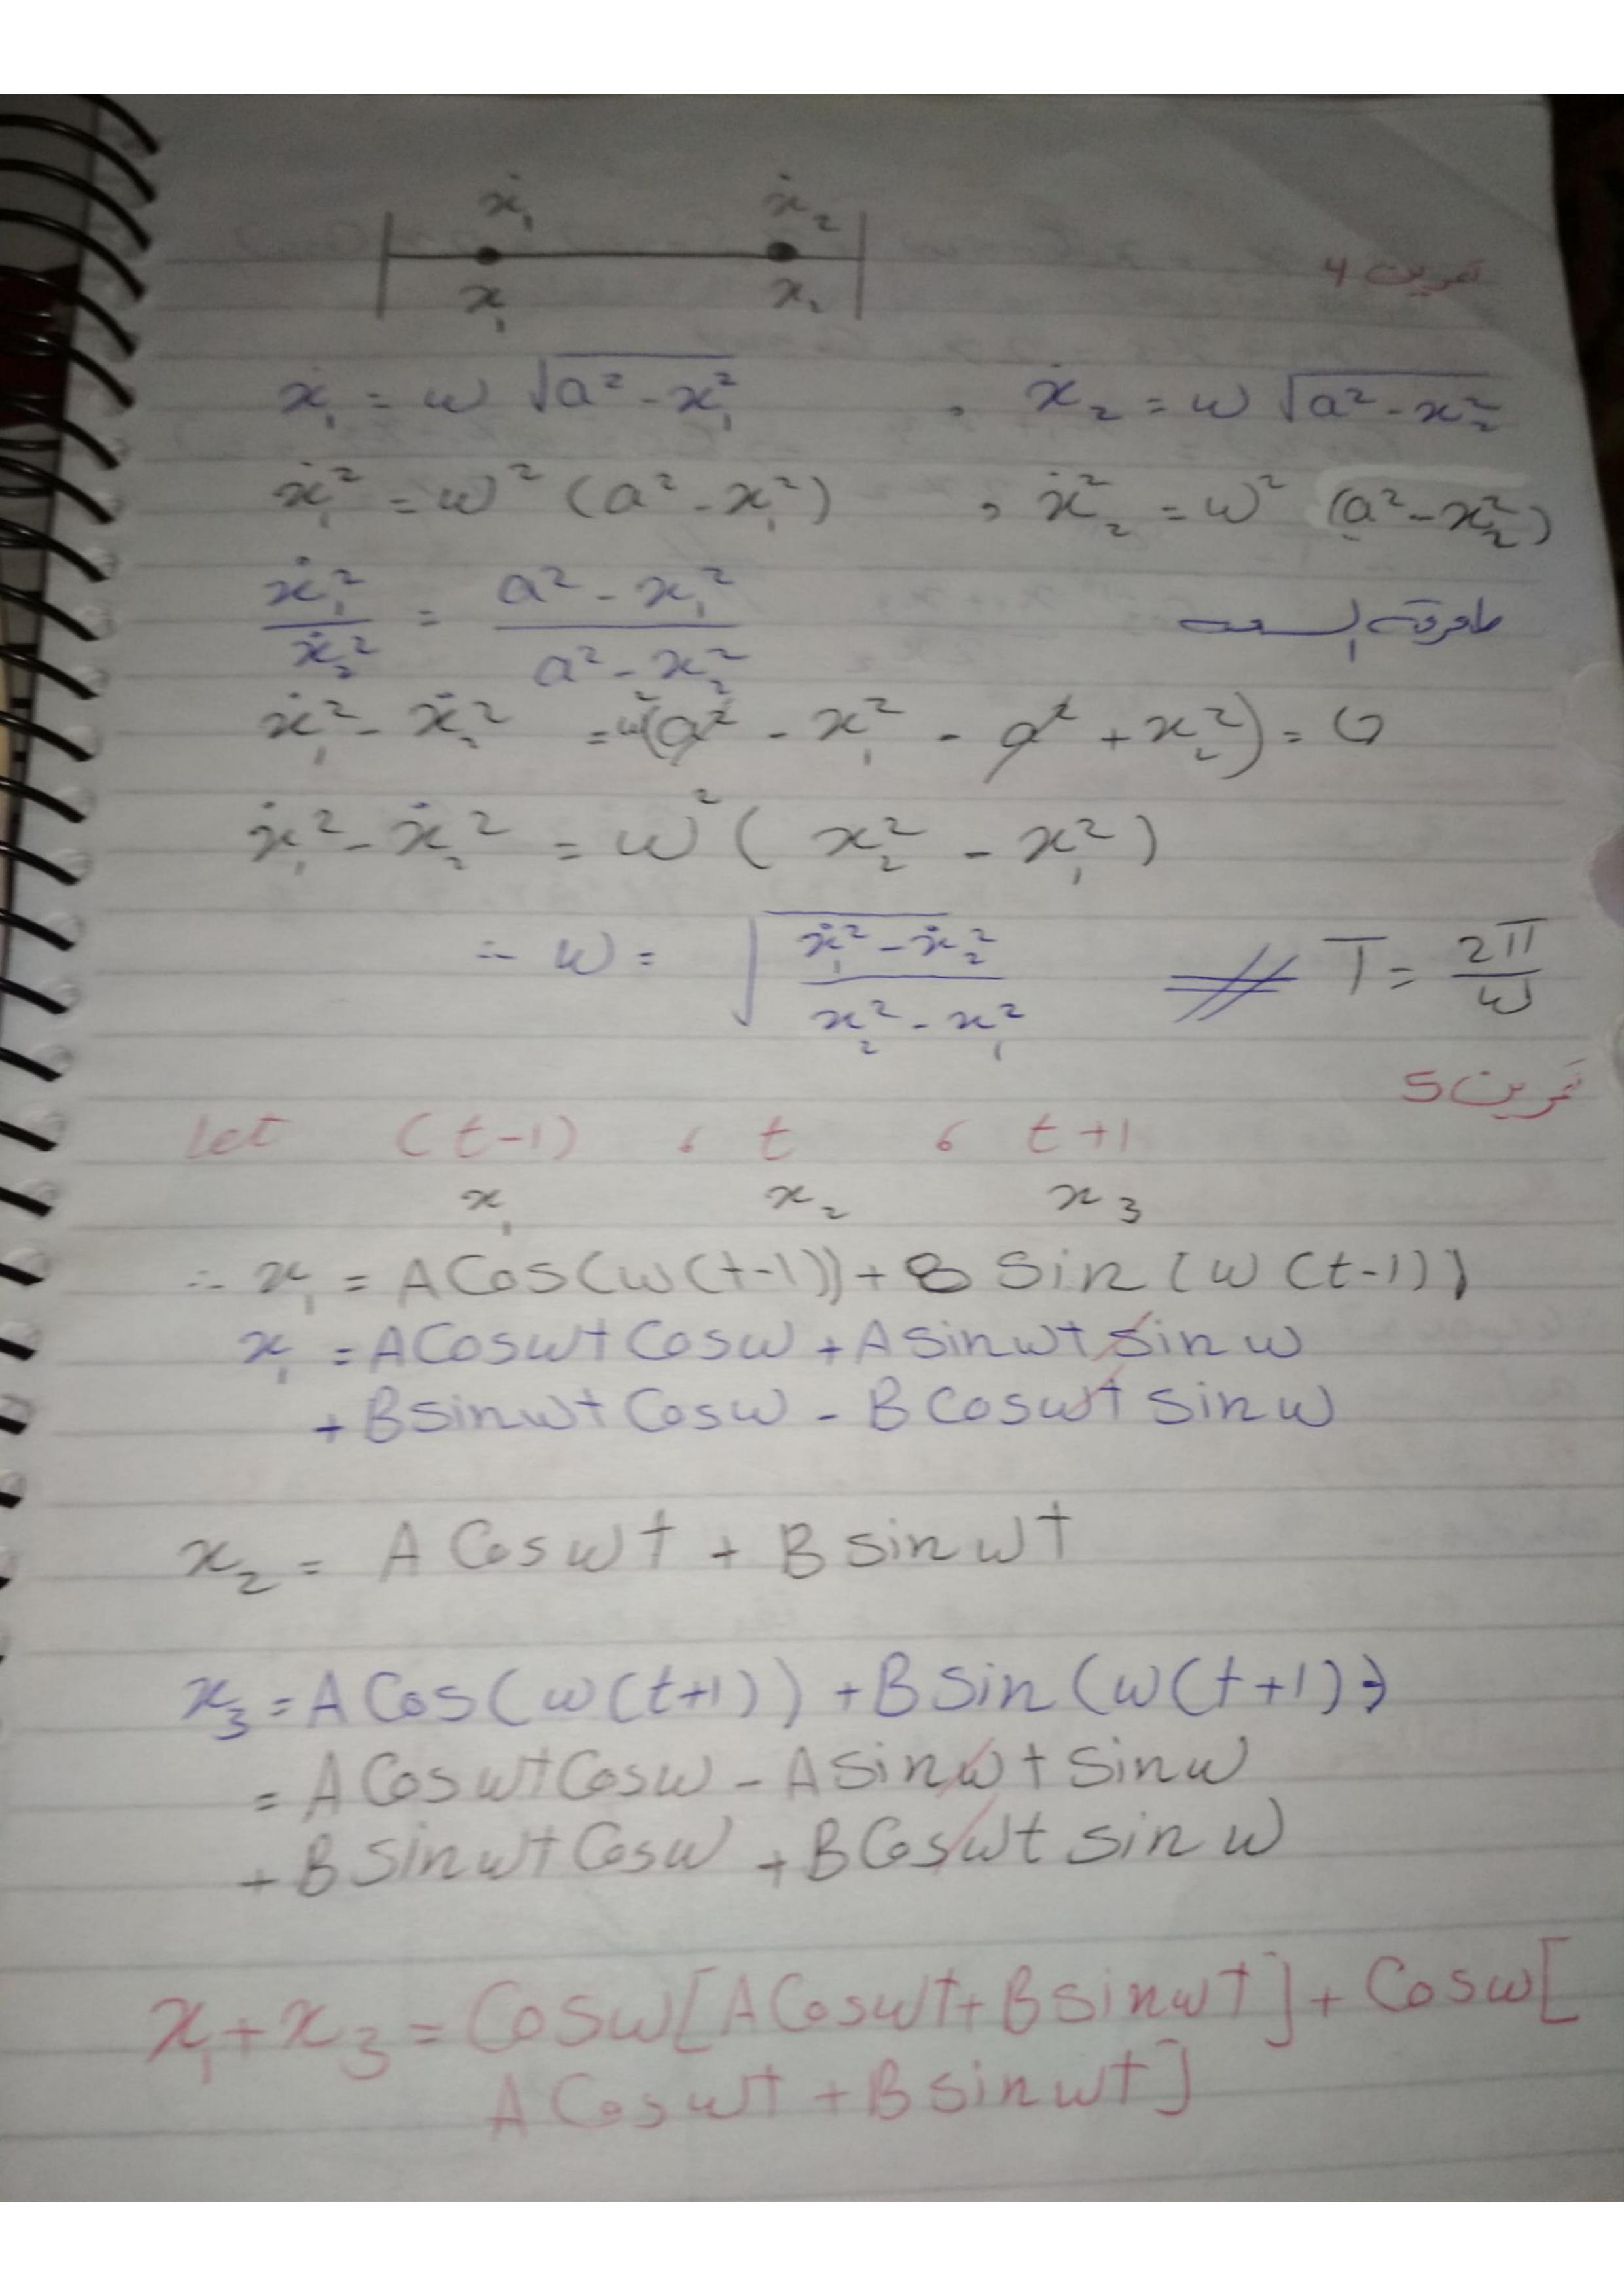 ẋ₁ ẋ₂
تمرين 4
x₁ x₂
ẋ₁ = ω √a² - x₁² , ẋ₂ = ω √a² - x₂²
ẋ₁² = ω² (a² - x₁²) , ẋ₂² = ω² (a² - x₂²)
ẋ₁²/ẋ₂² = a² - x₁²/a² - x₂²
ẋ₁² - ẋ₂² = ω²(a² - x₁² - a² + x₂²) = 0
ẋ₁² - ẋ₂² = ω² ( x₂² - x₁² )
∴ ω = √ẋ₁² - ẋ₂²/x₂² - x₁² T = 2π/ω
تمرين 5
Let (t-1) , t , t+1
x₁ x₂ x₃
∴ x₁ = A Cos(ω(t-1)) + B Sin(ω(t-1))
x₁ = A Cosωt Cosω + A sinωt sin ω
+ B sinωt Cosω - B Cosωt sin ω
x₂ = A Cosωt + B sinωt
x₃ = A Cos(ω(t+1)) + B Sin(ω(t+1))
= A Cosωt Cosω - A sinωt sinω
+ B sinωt Cosω + B Cosωt sin ω
x₁ + x₃ = Cosω[A Cosωt + B sinωt] + Cosω[
A Cosωt + B sinωt]